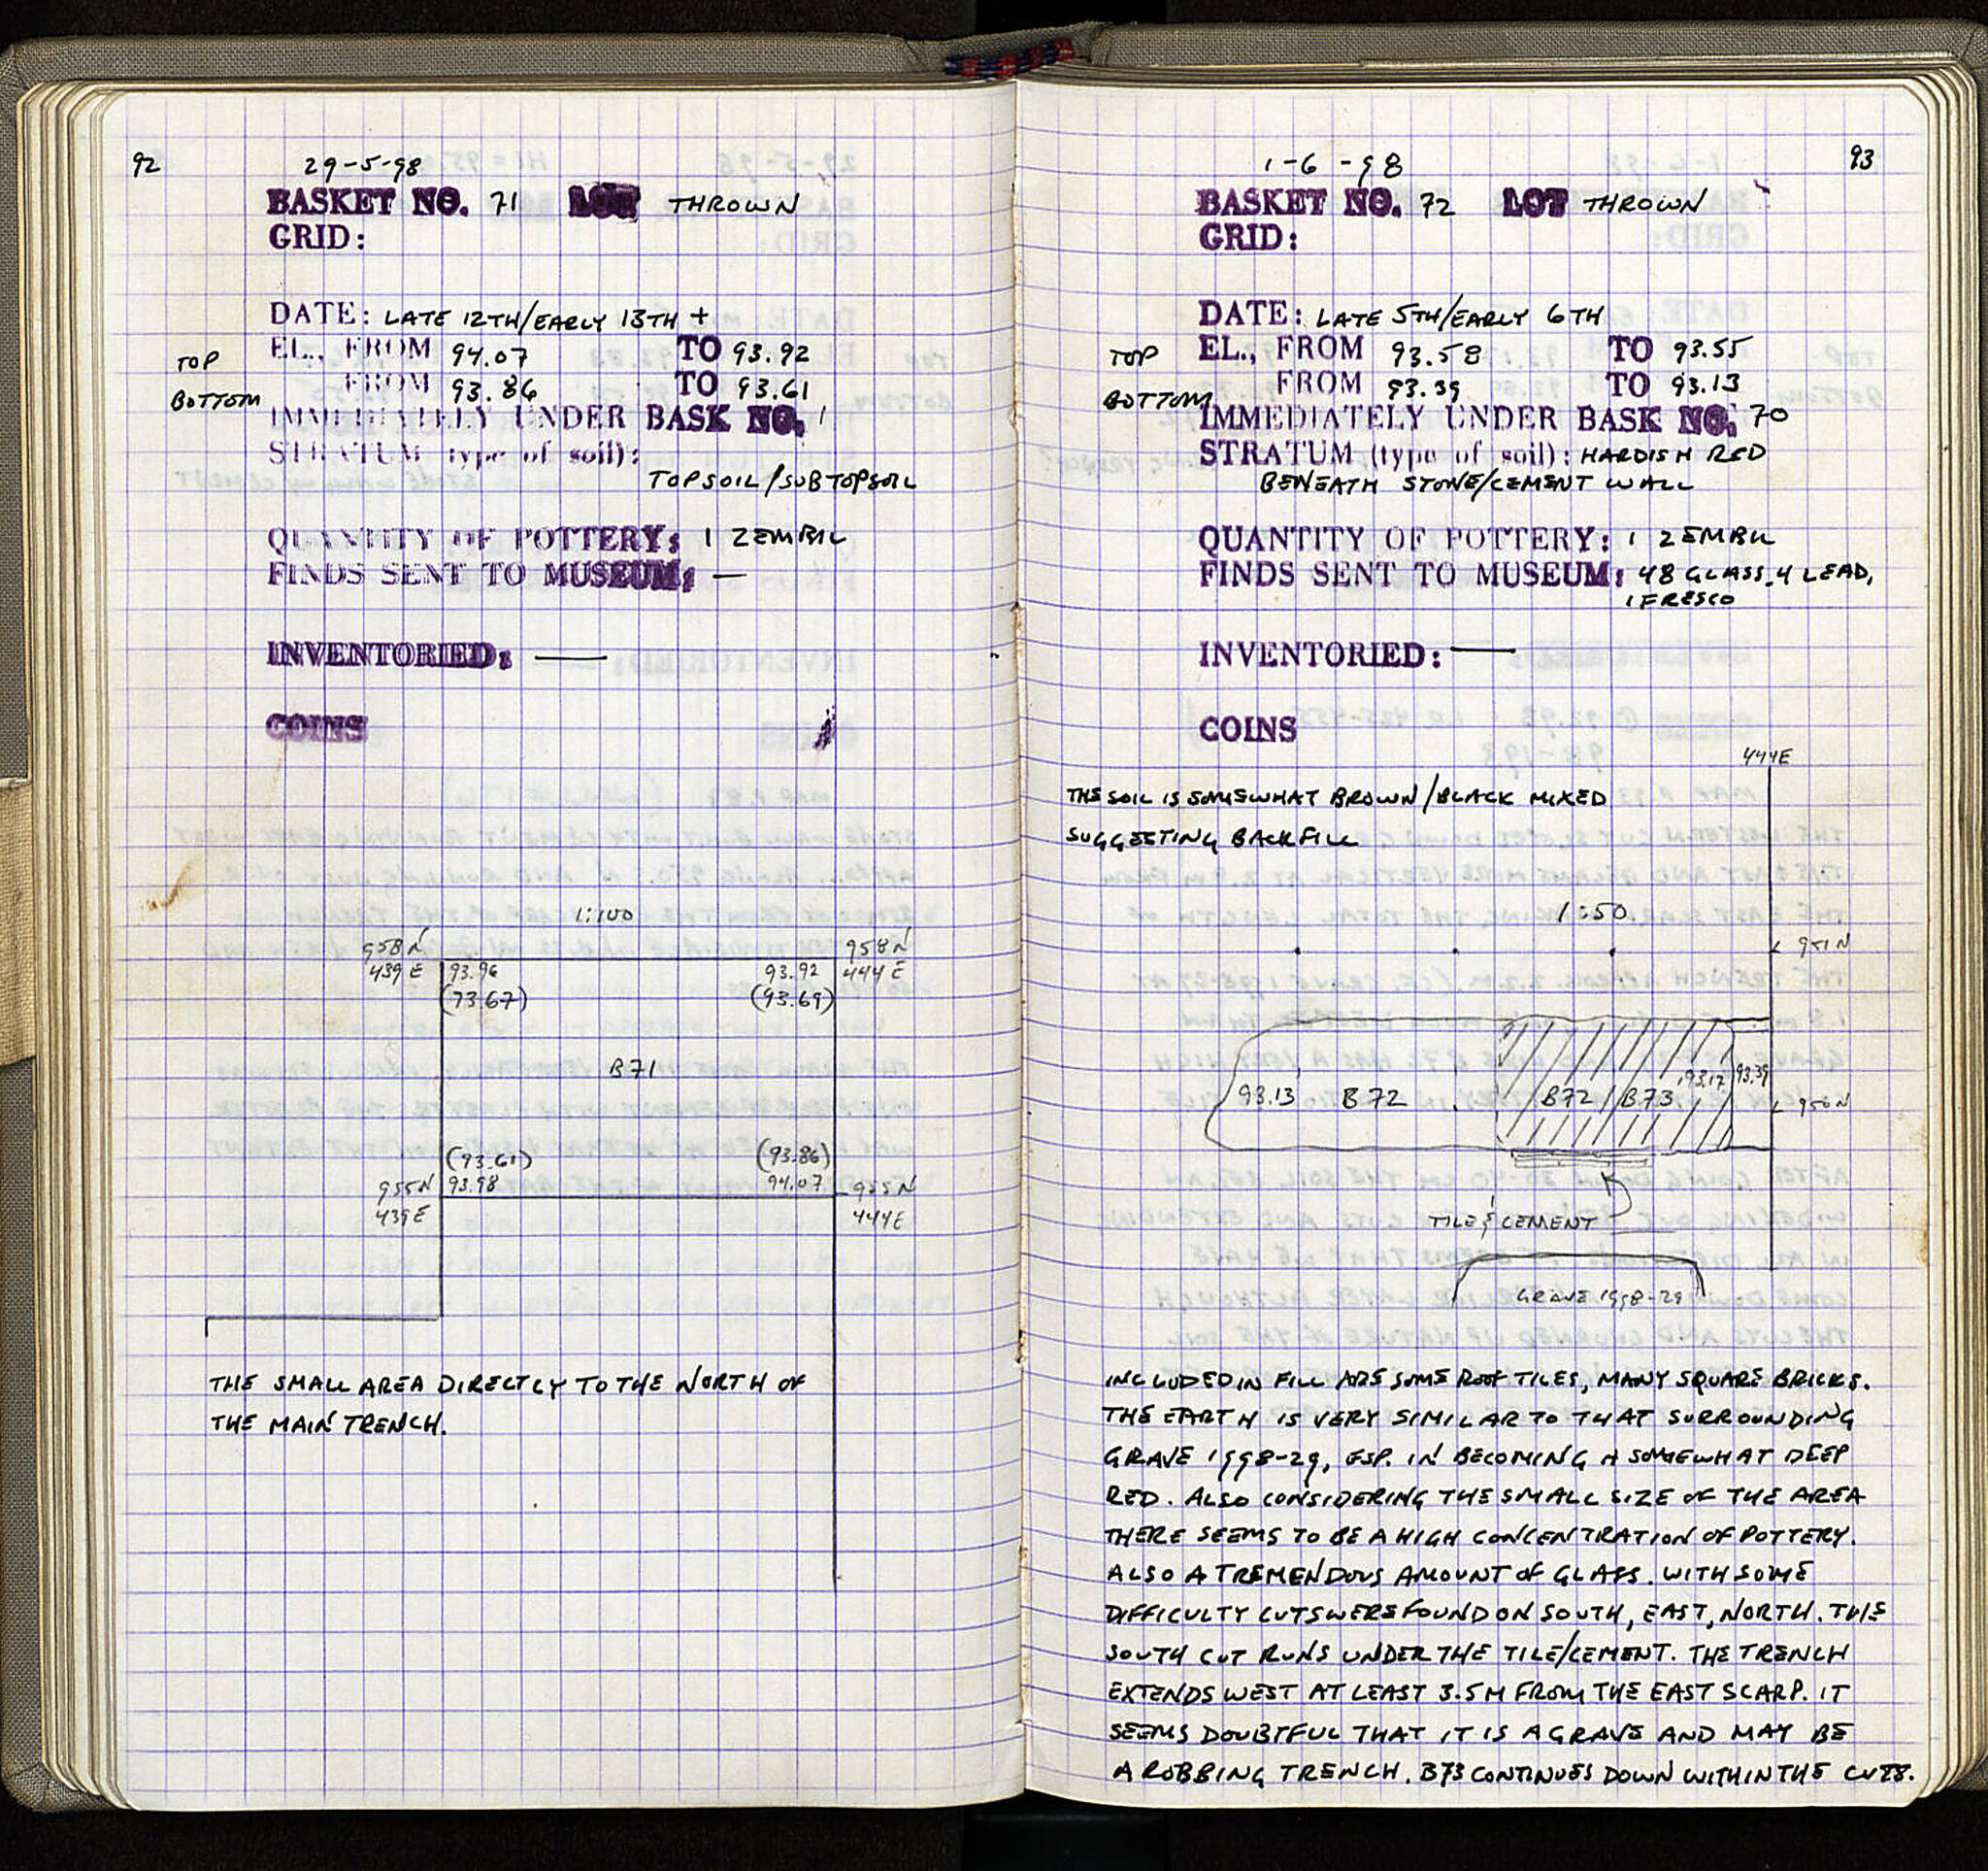 92
29-5-98
BASKET NO. 71 LOT THROWN
GRID:
DATE: LATE 12TH/EARLY 13TH +
TOP EL., FROM 94.07 TO 93.92
BOTTOM FROM 93.86 TO 93.61
IMMEDIATELY UNDER BASK NO. 1
STRATUM (type of soil):
TOPSOIL/SUBTOPSOIL
QUANTITY OF POTTERY: 1 ZEMBIL
FINDS SENT TO MUSEUM: —
INVENTORIED: —
COINS
1:100
958 N 958 N
439 E 93.96 93.92 444 E
(73.67) (93.69)
B71
(93.61) (93.86)
955N 93.98 94.07 955 N
439E 444E
THE SMALL AREA DIRECTLY TO THE NORTH OF
THE MAIN TRENCH.
93
1-6-98
BASKET NO. 72 LOT THROWN
GRID:
DATE: LATE 5TH/EARLY 6TH
TOP EL., FROM 93.58 TO 93.55
BOTTOM FROM 93.39 TO 93.13
IMMEDIATELY UNDER BASK NO. 70
STRATUM (type of soil): HARDISH RED
BENEATH STONE/CEMENT WALL
QUANTITY OF POTTERY: 1 ZEMBIL
FINDS SENT TO MUSEUM: 48 GLASS, 4 LEAD,
1 FRESCO
INVENTORIED: —
COINS
444E
THE SOIL IS SOMEWHAT BROWN/BLACK MIXED
SUGGESTING BACKFILL
1:50
951 N
93.13 B72 B72/B73 93.17 93.39
950 N
TILE & CEMENT
GRAVE 1998-29
INCLUDED IN FILL ARE SOME ROOF TILES, MANY SQUARE BRICKS.
THE EARTH IS VERY SIMILAR TO THAT SURROUNDING
GRAVE 1998-29, ESP. IN BECOMING A SOMEWHAT DEEP
RED. ALSO CONSIDERING THE SMALL SIZE OF THE AREA
THERE SEEMS TO BE A HIGH CONCENTRATION OF POTTERY.
ALSO A TREMENDOUS AMOUNT OF GLASS. WITH SOME
DIFFICULTY CUTS WERE FOUND ON SOUTH, EAST, NORTH. THE
SOUTH CUT RUNS UNDER THE TILE/CEMENT. THE TRENCH
EXTENDS WEST AT LEAST 3.5M FROM THE EAST SCARP. IT
SEEMS DOUBTFUL THAT IT IS A GRAVE AND MAY BE
A ROBBING TRENCH. B73 CONTINUES DOWN WITHIN THE CUTS.